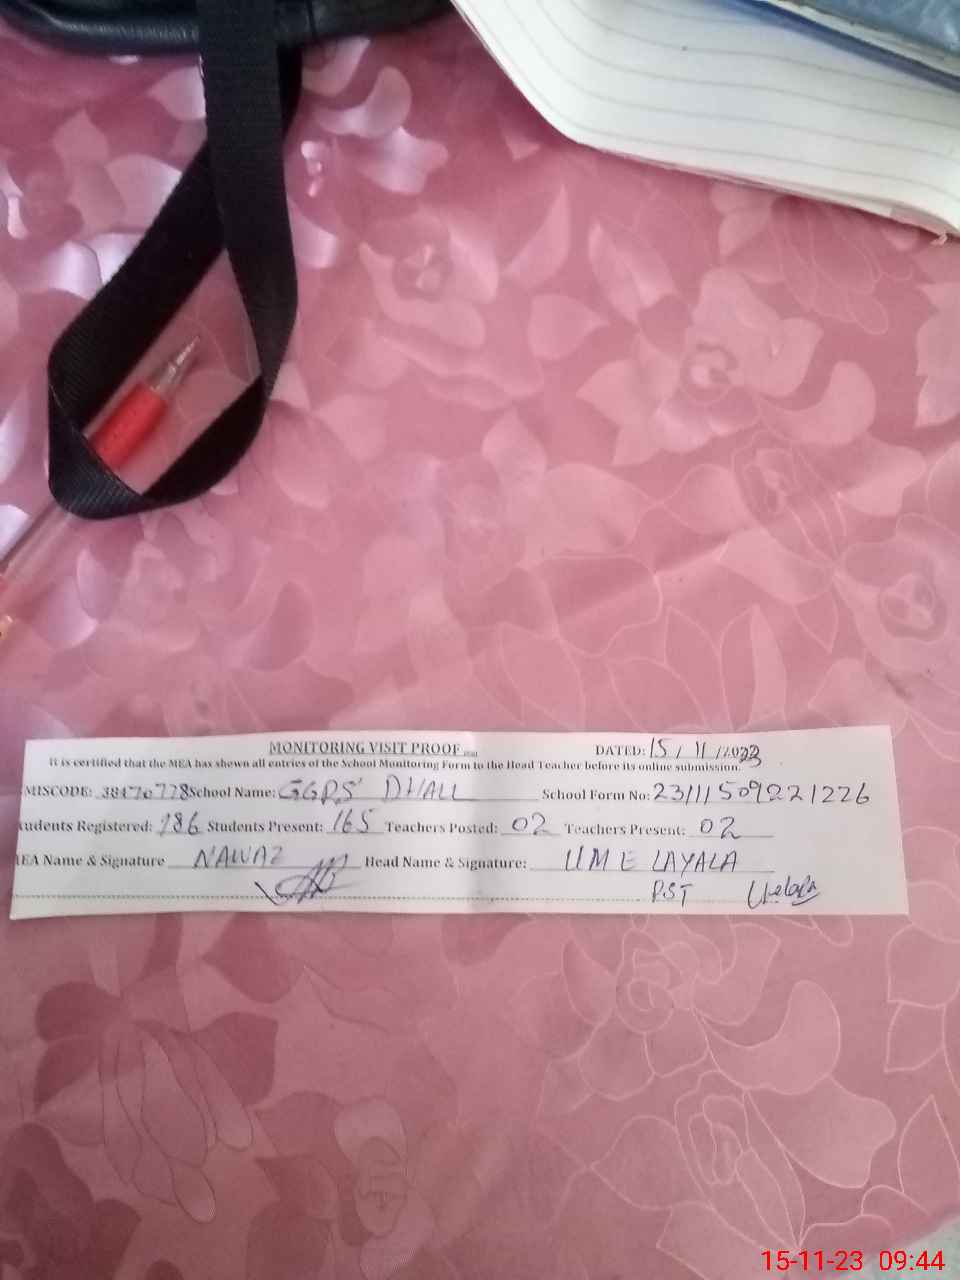 MONITORING VISIT PROOF DATED: 15/11/2023
It is certified that the MEA has shown all entries of the School Monitoring Form to the Head Teacher before its online submission.
MISCODE: 38470778 School Name: GGPS DHALL School Form No: 231115091221226
tudents Registered: 186 Students Present: 165 Teachers Posted: 02 Teachers Present: 02
EA Name & Signature NAWAZ Head Name & Signature: UME LAYALA
PST
15-11-23 09:44